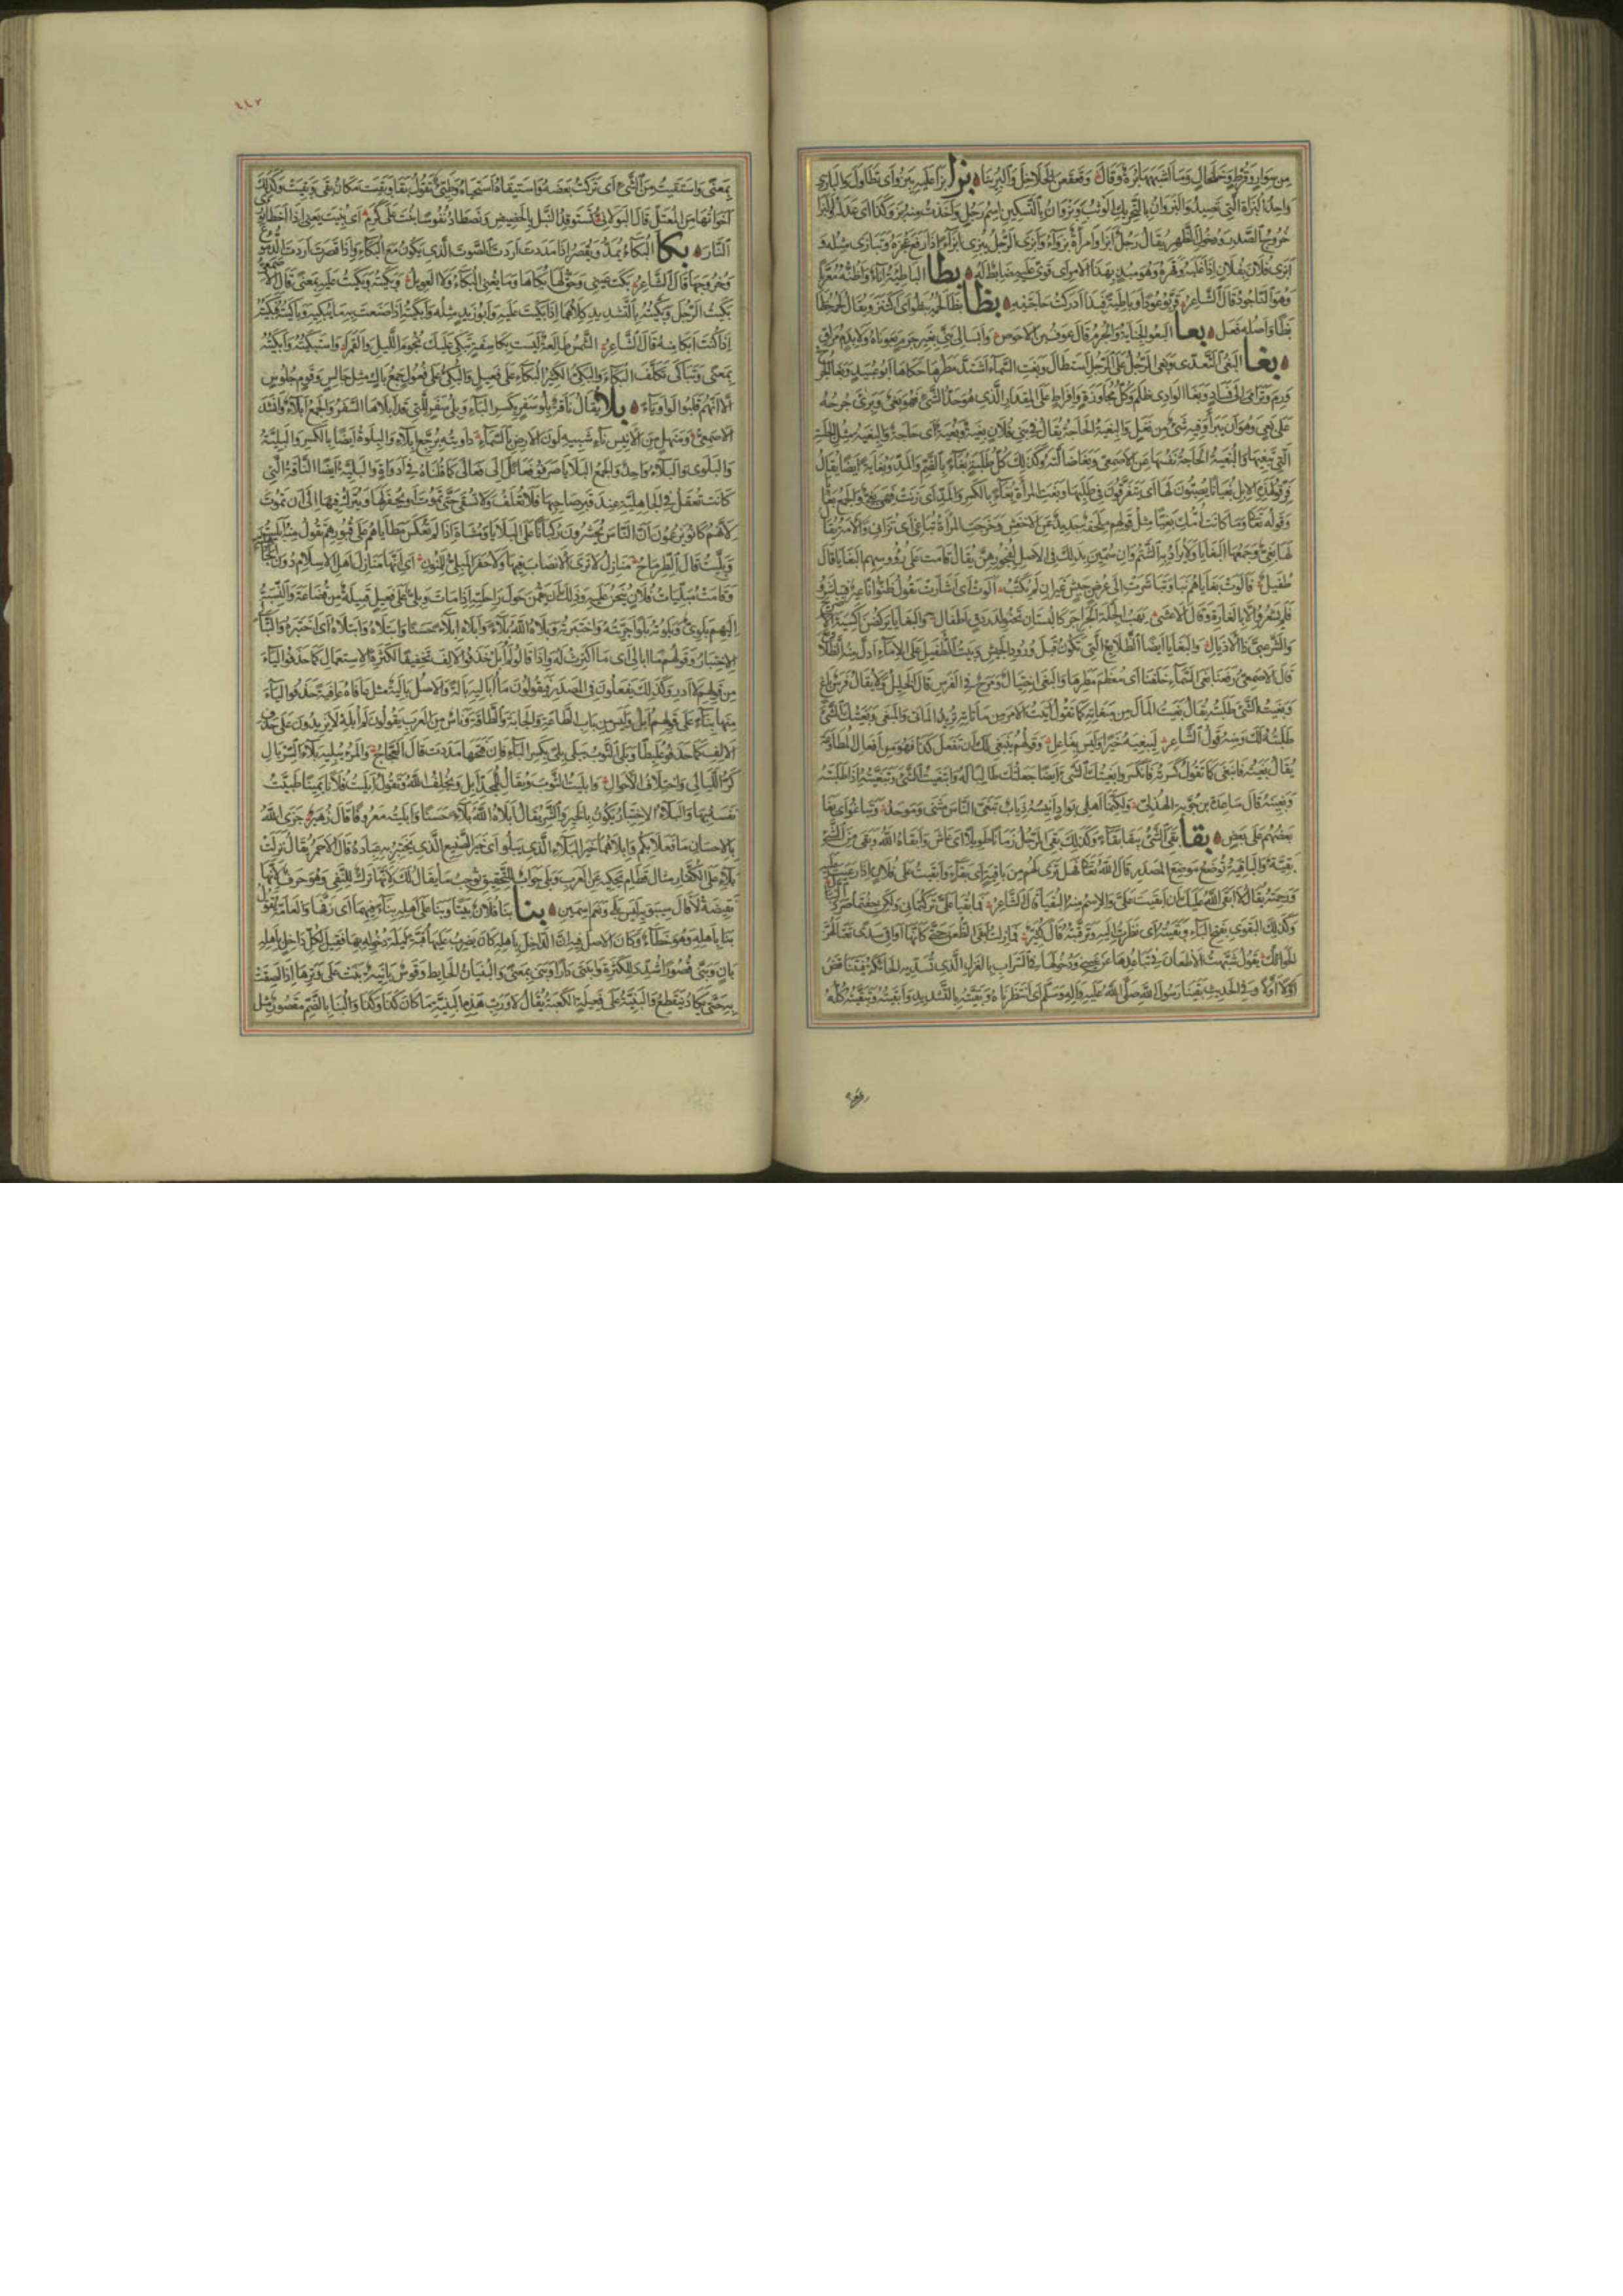 من سوار وقرط وخلخال وما أشبهها برة وقال وقعقعن الخلاخل والبرينا بزا بزا عليه يبزو أي تطاول والبازي
واحد البزاة التي تصيد والبزوان بالتحريك الوثب وبزوان بالتسكين اسم رجل وأخذت منه بزو كذا أي عدل
خروج الصدر ودخول الظهر يقال رجل أبزا وامرأة بزواء وأبزى الرجل يبزى إبزاء إذا رفع عجزه وتبازى مثله
أبزى فلان بفلان إذا غلبه وقهره وهو مبز بهذا الأمر أي قوي عليه ضابط له بطا الباطية إناء وأظنه معربا
وهو الناجود قال الشاعر بظا بظا لحمه يبظو أي اكتنز ويقال لحمه خظا
بظا وأصله فعل بعا البعو الجناية والجرم قال عوف بن الأحوص وإبسالي بني بغير جرم بعوناه ولا بدم مراق
بغا البغي التعدي وبغى الرجل على الرجل استطال وبغت السماء اشتد مطرها حكاها أبو عبيد وبغا الجرح
ورم وترامى إلى فساد وبغا الوادي ظلم وكل مجاوزة وإفراط على المقدار الذي هو حد الشيء فهو بغي وبرئ جرحه
على بغي وهو أن يبرأ وفيه شيء من نغل والبغية الحاجة يقال لي في بني فلان بغية وبغية أي حاجة والبغية مثل الجلسة
التي تبغيها والبغية الحاجة نفسها عن الأصمعي وبغا ضالته وكذلك كل طلبة بغاء بالضم والمد وبغاية أيضا يقال
وبغت المرأة بغاء بالكسر والمد أي زنت فهي بغي والجمع بغايا
وقوله تعالى وما كانت أمك بغيا مثل قولهم ملحفة جديد عن الأخفش وخرجت المرأة تباغي أي تزاني والأمة يقال
لها بغي وجمعها البغايا ولا يراد به الشتم وإن سمين بذلك في الأصل لفجورهن يقال قامت على رؤوسهم البغايا قال
طفيل فألوت بغاياهم بنا وتباشرت إلى عرض جيش غير أن لم يكتب ألوت أي أشارت يقول ظنوا أنا عير
فلم يشعروا إلا بالغارة وقال الأعشى يهب الجلة الجراجر كالبستان تحنو لدردق أطفال والبغايا يركضن أكسية
والشرعبي ذا الأذيال والبغايا أيضا الطلائع التي تكون قبل ورود الجيش
قال الأصمعي دفعنا بغي السماء خلفنا أي معظم مطرها والبغي اختيال ومرح في الفرس قال الخليل ولا يقال فرس باغ
وبغيت الشيء طلبته يقال بغيت المال من مبغاته كما تقول أتيت الأمر من مأتاته تريد المأتى والمبغى وبغيتك الشيء
طلبته لك ومنه قول الشاعر ليبغيه خيرا وليس بفاعل وقولهم ينبغي لك أن تفعل كذا فهو من أفعال المطاوعة
يقال بغيته فانبغى كما تقول كسرته فانكسر وأبغيتك الشيء أيضا جعلتك طالبا له وابتغيت الشيء وتبغيته إذا طلبته
وبغيته قال ساعدة بن جؤية الهذلي ولكنما أهلي بواد أنيسه ذئاب تبغى الناس مثنى وموحد وتباغوا أي بغا
بعضهم على بعض بقا بقي الشيء يبقا بقاء وكذلك بقي الرجل زمانا طويلا أي عاش وأبقاه الله وبقي من الشيء
بقية والباقية توضع موضع المصدر قال الله تعالى فهل ترى لهم من باقية أي بقاء وأبقيت على فلان إذا رعيت عليه
ورحمته يقال لا أبقى الله عليك إن أبقيت علي والاسم منه البقيا قال الشاعر فما بقيا علي تركتماني ولكن خفتما صرد
وكذلك البقوى بفتح الباء وبقيته أي نظرت إليه وترقبته قال كثير فما زلت أبقي الظعن حتى كأنها أواقي سدى تغتالهن
الحوائك يقول شبهت الأظعان في تباعدها عن عيني ودخولها في السراب بالغزل الذي تسديه الحائكة فيتناقص
أولا أولا وفي الحديث بقينا رسول الله صلى الله عليه وآله وسلم أي انتظرناه وبقيته بالتشديد وأبقيته وتبقيته كله
١١٢
بمعنى واستبقيت من الشيء أي تركت بعضه واستبقاه استحياه وطيئ تقول بقا وبقت مكان بقي وبقيت وكذلك
أخواتها من المعتل قال البولاني نستوقد النبل بالحضيض ونصطاد نفوسا بنت على الكرم أي بنيت يعني إذا أخطأ
النار بكا البكاء يمد ويقصر إذا مددت أردت الصوت الذي يكون مع البكاء وإذا قصرت أردت الدموع
وخروجها قال الشاعر بكت عيني وحق لها بكاها وما يغني البكاء ولا العويل وبكيته وبكيت عليه بمعنى قال الأصمعي
بكيت الرجل وبكيته بالتشديد كلاهما إذا بكيت عليه وأبو زيد مثله وأبكيته إذا صنعت به ما يبكيه وباكيته فبكيته
إذا كنت أبكا منه قال الشاعر الشمس طالعة ليست بكاسفة تبكي عليك نجوم الليل والقمرا واستبكيته وأبكيته
بمعنى وتباكى تكلف البكاء والبكي الكثير البكاء على فعيل والبكي على فعول جمع باك مثل جالس وقوم جلوس
إلا أنهم قلبوا الواو ياء بلا يقال ناقة بلو سفر بكسر الباء وبلي سفر للتي قد أبلاها السفر والجمع أبلاء وأنشد
الأصمعي ومنهل من الأنيس ناء شبيه لون الأرض بالسماء داويته برجع أبلاء والبلوة أيضا بالكسر والبلية
والبلوى والبلاء واحد والجمع البلايا صرفوا فعائل إلى فعالى كما قلناه في إداوة والبلية أيضا الناقة التي
كانت تعقل في الجاهلية عند قبر صاحبها فلا تعلف ولا تسقى حتى تموت أو يحفر لها وتترك فيها إلى أن تموت
لأنهم كانوا يزعمون أن الناس يحشرون ركبانا على البلايا ومشاة إذا لم تعكس مطاياهم على قبورهم تقول منه أبليت
وبليت قال الطرماح منازل لا ترى الأنصاب فيها ولا حفر المبلي للمنون أي إنها منازل أهل الإسلام دون الجاهلية
وقامت مبليات فلان ينحن عليه وذلك أن يقمن حول راحلته إذا مات وبلي على فعيل قبيلة من قضاعة والنسبة
إليهم بلوي وبلوته بلوا جربته واختبرته وبلاه الله بلاء وأبلاه إبلاء حسنا وابتلاه أي اختبره والتبالي
الاختبار وقولهم ما أباليه أي ما أكترث له وإذا قالوا لم أبل حذفوا الألف تخفيفا لكثرة الاستعمال كما حذفوا الياء
من قولهم لا أدر وكذلك يفعلون في المصدر فيقولون ما أباليه بالة والأصل بالية مثل عافاه عافية حذفوا الياء
منها بناء على قولهم لم أبل وليس من باب الطاعة والجابة والطاقة وناس من العرب يقولون لم أبله لا يزيدون على حذف
الألف كما حذفوا علبطا وبلي الثوب يبلى بلى بكسر الباء فإن فتحتها مددت قال العجاج والمرء يبليه بلاء السربال
كر الليالي واختلاف الأحوال وأبليت الثوب ويقال للمجد أبل ويخلف الله وتقول أبليت فلانا يمينا إذا طيبت
نفسه بها والبلاء الاختبار يكون بالخير والشر يقال أبلاه الله بلاء حسنا وأبليته معروفا قال زهير جزى الله
بالإحسان ما فعلا بكم وأبلاهما خير البلاء الذي يبلو أي خير الصنيع الذي يختبر به عباده قال الأحمر يقال نزلت
بلاء على الكفار مثال قطام يحكيه عن العرب وبلى جواب للتحقيق توجب ما يقال لك لأنها ترك للنفي وهو حرف لأنها
نقيضة لا قال سيبويه ليس بلى ونعم اسمين بنا بنا فلان بيتا وبنا على أهله بناء فيهما أي زفها والعامة تقول
بنا بأهله وهو خطأ وكان الأصل فيه أن الداخل بأهله كان يضرب عليها قبة ليلة دخوله بها فقيل لكل داخل بأهله
بان وبنى قصورا شدد للكثرة وابتنى دارا وبنى بمعنى والبنيان الحائط وقوس بانية بنت على وترها إذا لصقت
به حتى يكاد ينقطع والبنية على فعيلة الكعبة يقال لا ورب هذه البنية ما كان كذا وكذا والبنا بالضم مقصور مثل